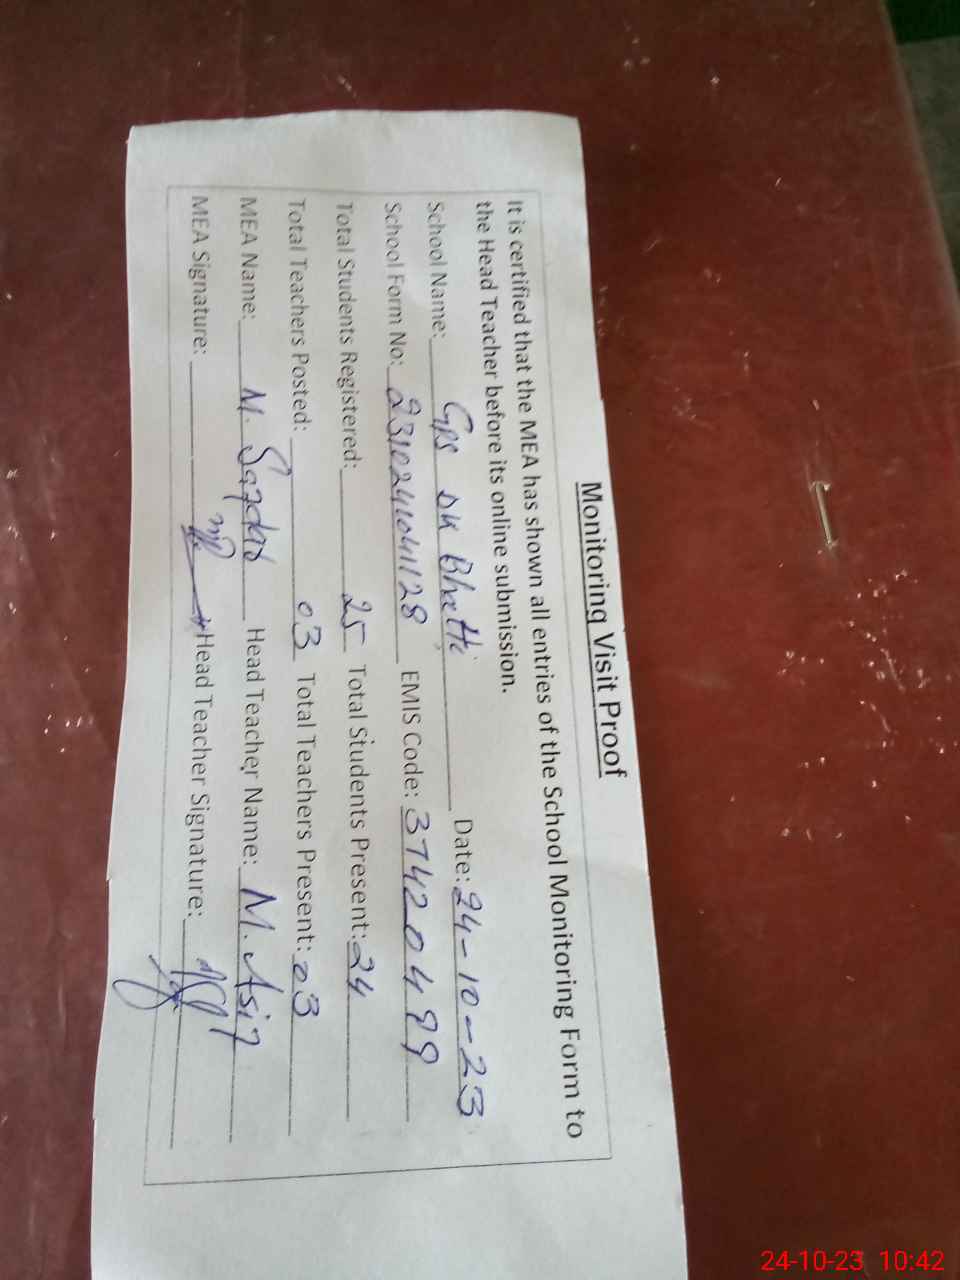 Monitoring Visit Proof
It is certified that the MEA has shown all entries of the School Monitoring Form to
the Head Teacher before its online submission.
School Name: GPS DK Bhatti Date: 24-10-23
School Form No: 2310241041128 EMIS Code: 37420499
Total Students Registered: 25 Total Students Present: 24
Total Teachers Posted: 03 Total Teachers Present: 03
MEA Name: M. Head Teacher Name: M. Asif
MEA Signature: Head Teacher Signature:
24-10-23 10:42